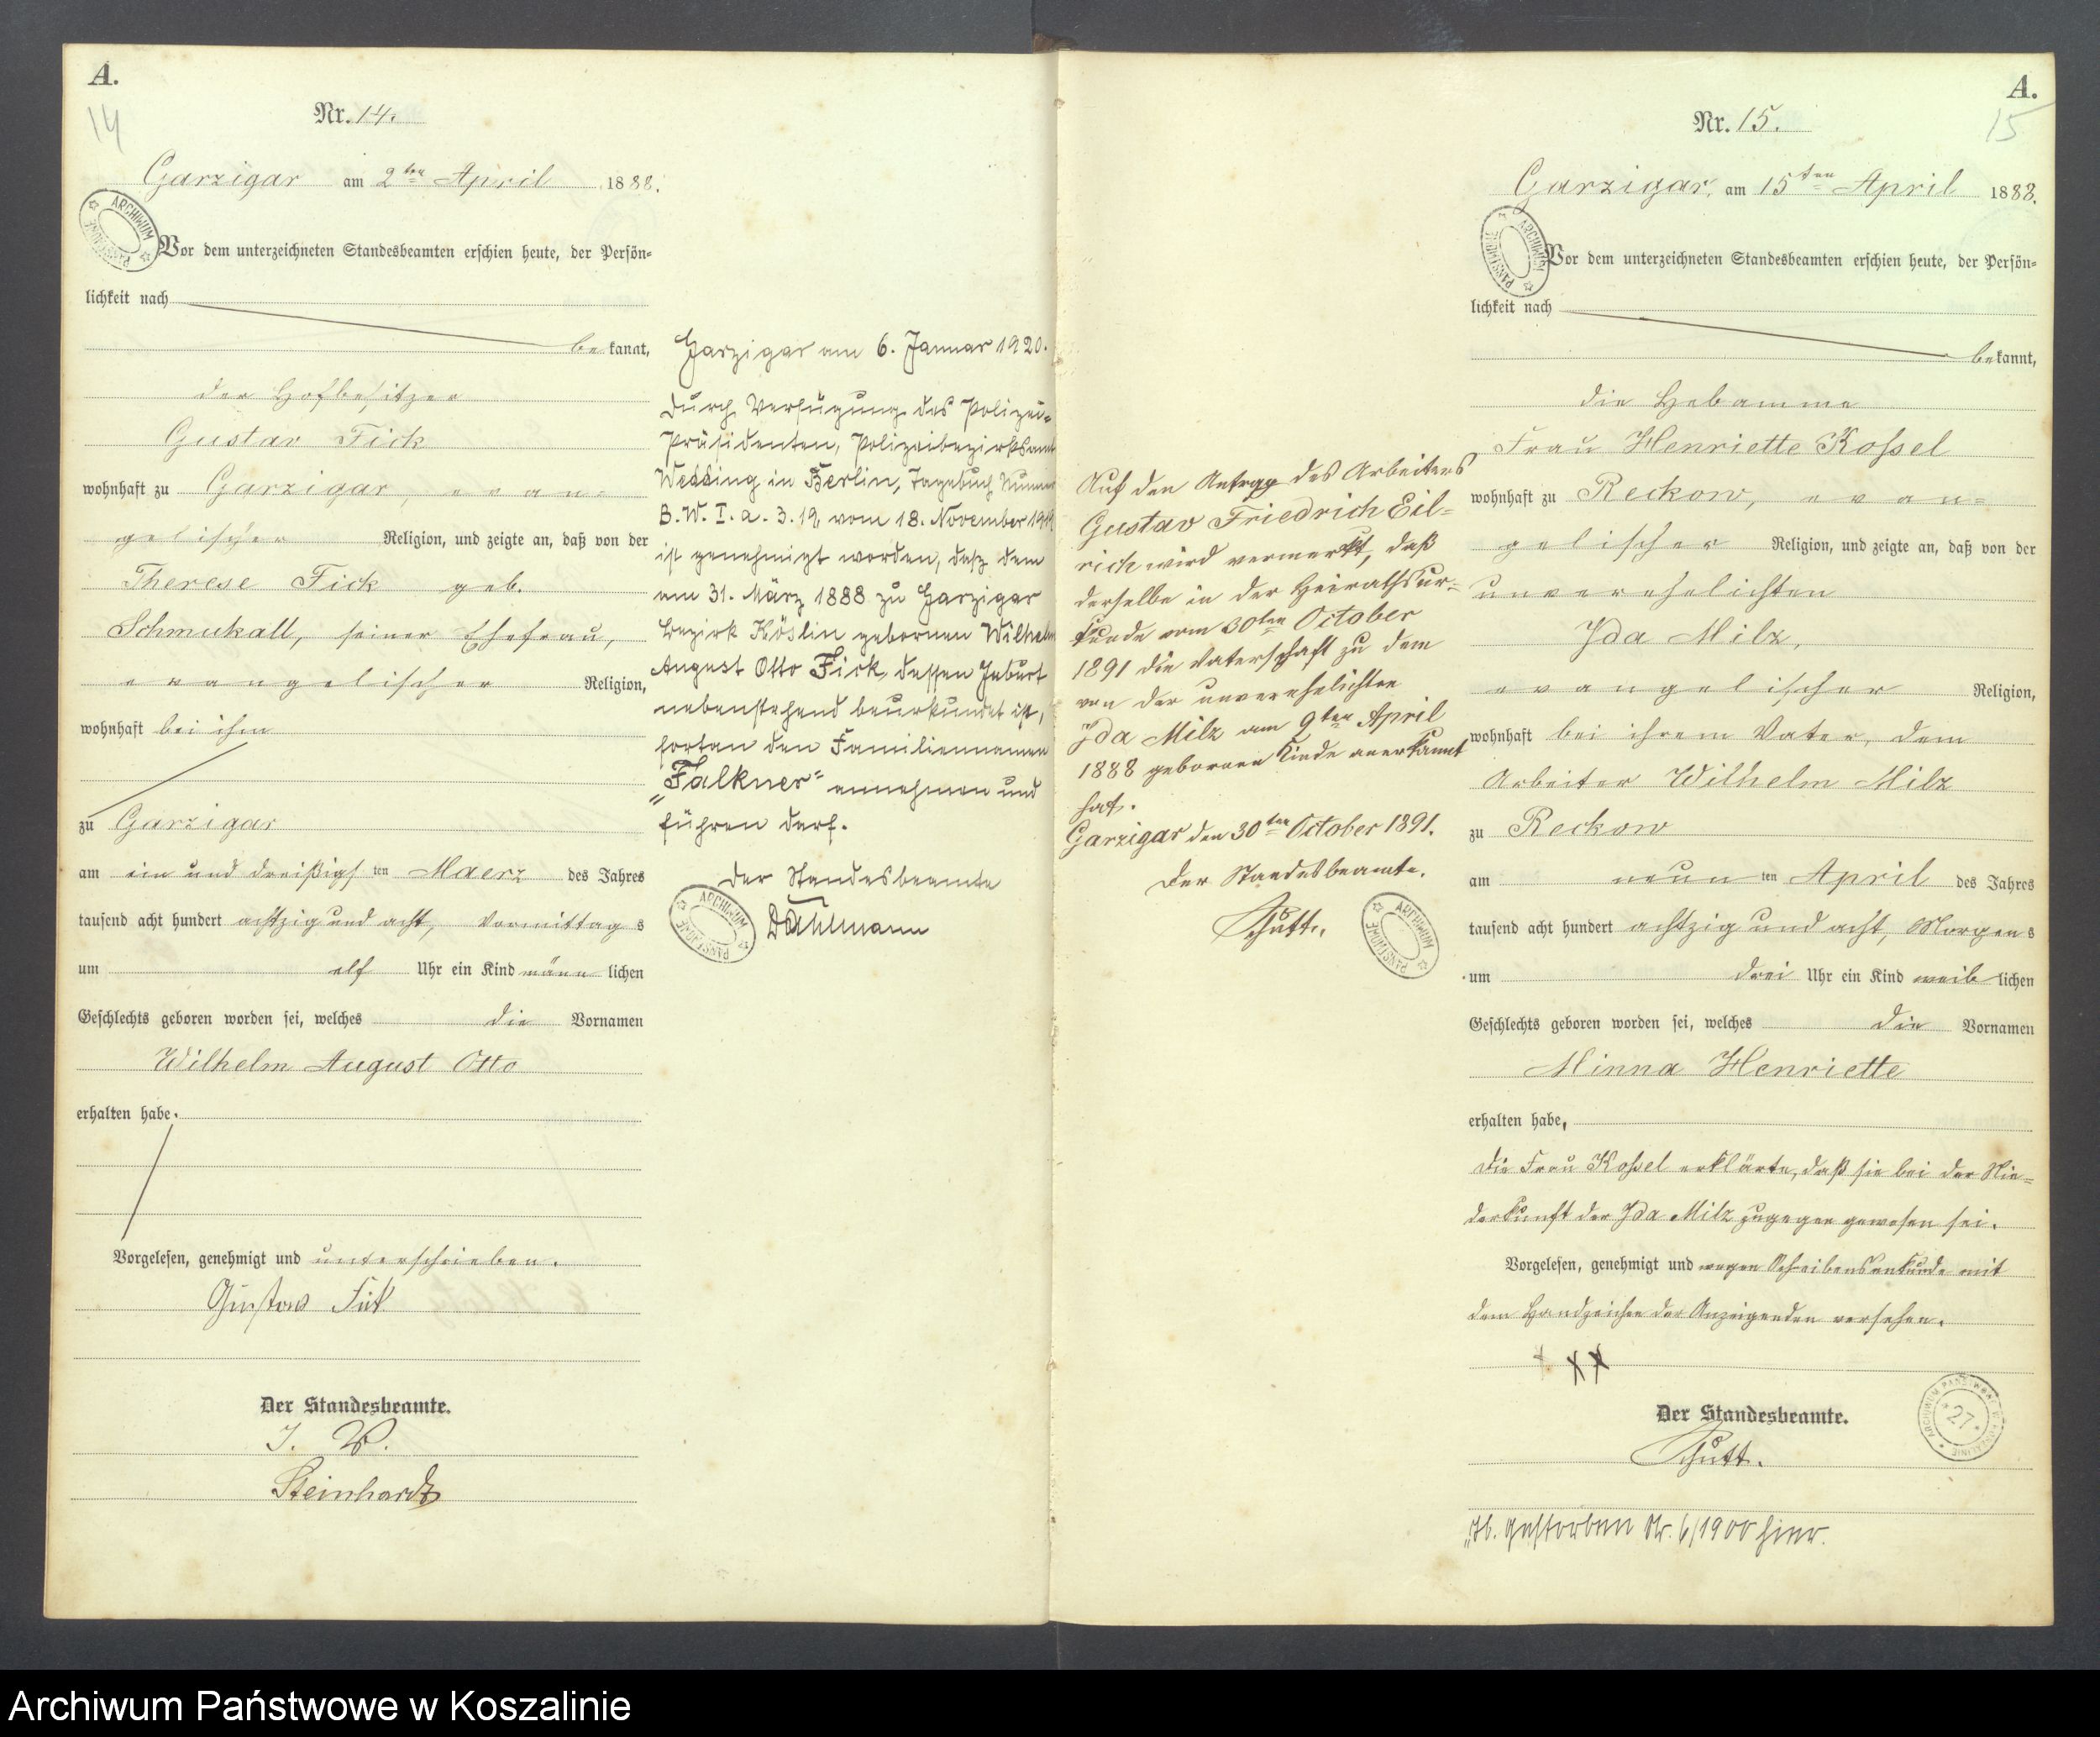 A.
14
Nr. 14.
Garzigar am 2ten April 1888.
Vor dem unterzeichneten Standesbeamten erschien heute, der Persön-
lichkeit nach
bekannt,
der Hofbesitzer
Gustav Fick
wohnhaft zu Garzigar, evan-
gelischer Religion, und zeigte an, daß von der
Therese Fick geb.
Schmukall, seiner Ehefrau,
evangelischer Religion,
wohnhaft bei ihm
zu Garzigar
am ein und dreißigsten Maerz des Jahres
tausend acht hundert achtzig und acht, Vormittags
um elf Uhr ein Kind männlichen
Geschlechts geboren worden sei, welches die Vornamen
Wilhelm August Otto
erhalten habe.
Vorgelesen, genehmigt und unterschrieben.
Gustav Fick
Der Standesbeamte.
I. V.
Steinhardt
Garzigar am 6. Januar 1920.
Durch Verfügung des Polizei-
Präsidenten, Polizeibezirksamt
Wedding in Berlin, Tagebuch Nummer
B. W. I. a. 3. 19 vom 18. November 1919
ist genehmigt worden, dasz dem
am 31. März 1888 zu Garzigar
Bezirk Köslin gebornen Wilhelm
August Otto Fick, dessen Geburt
nebenstehend beurkundet ist,
fortan den Familiennamen
„Falkner“ annehmen und
führen darf.
Der Standesbeamte
Dahlmann
ARCHIWUM PAŃSTWOWE
Auf den Antrag des Arbeiters
Gustav Friedrich Eil-
rich wird vermerkt, daß
derselbe in der Heirathsur-
kunde vom 30ten October
1891 die Vaterschaft zu dem
von der unverehelichten
Ida Milz am 9ten April
1888 geborenen Kinde anerkannt
hat.
Garzigar den 30ten October 1891.
Der Standesbeamte.
Schütt.
ARCHIWUM PAŃSTWOWE
A.
15
Nr. 15.
Garzigar, am 15ten April 1888.
Vor dem unterzeichneten Standesbeamten erschien heute, der Persön-
lichkeit nach
bekannt,
die Hebamme
Frau Henriette Koßel
wohnhaft zu Reckow, evan-
gelischer Religion, und zeigte an, daß von der
unverehelichten
Ida Milz,
evangelischer Religion,
wohnhaft bei ihrem Vater, dem
Arbeiter Wilhelm Milz
zu Reckow
am neunten April des Jahres
tausend acht hundert achtzig und acht, Morgens
um drei Uhr ein Kind weiblichen
Geschlechts geboren worden sei, welches die Vornamen
Minna Henriette
erhalten habe,
Die Frau Koßel erklärte, daß sie bei der Nie-
derkunft der Ida Milz zugegen gewesen sei.
Vorgelesen, genehmigt und wegen Schreibensunkunde mit
dem Handzeichen der Anzeigenden versehen.
+ x x
Der Standesbeamte.
Schütt.
ARCHIWUM PAŃSTWOWE W KOSZALINIE
27
Gestorben Nr. 6/1900 hier.
Archiwum Państwowe w Koszalinie